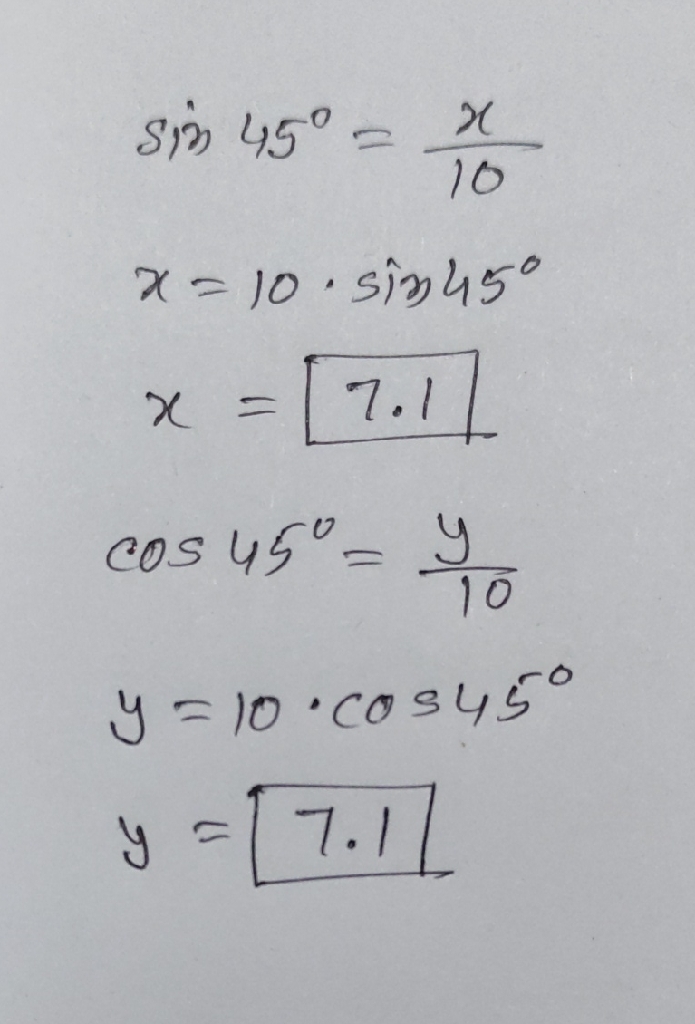 sin 45° = x/10
x = 10 · sin 45°
x = 7.1
cos 45° = y/10
y = 10 · cos 45°
y = 7.1